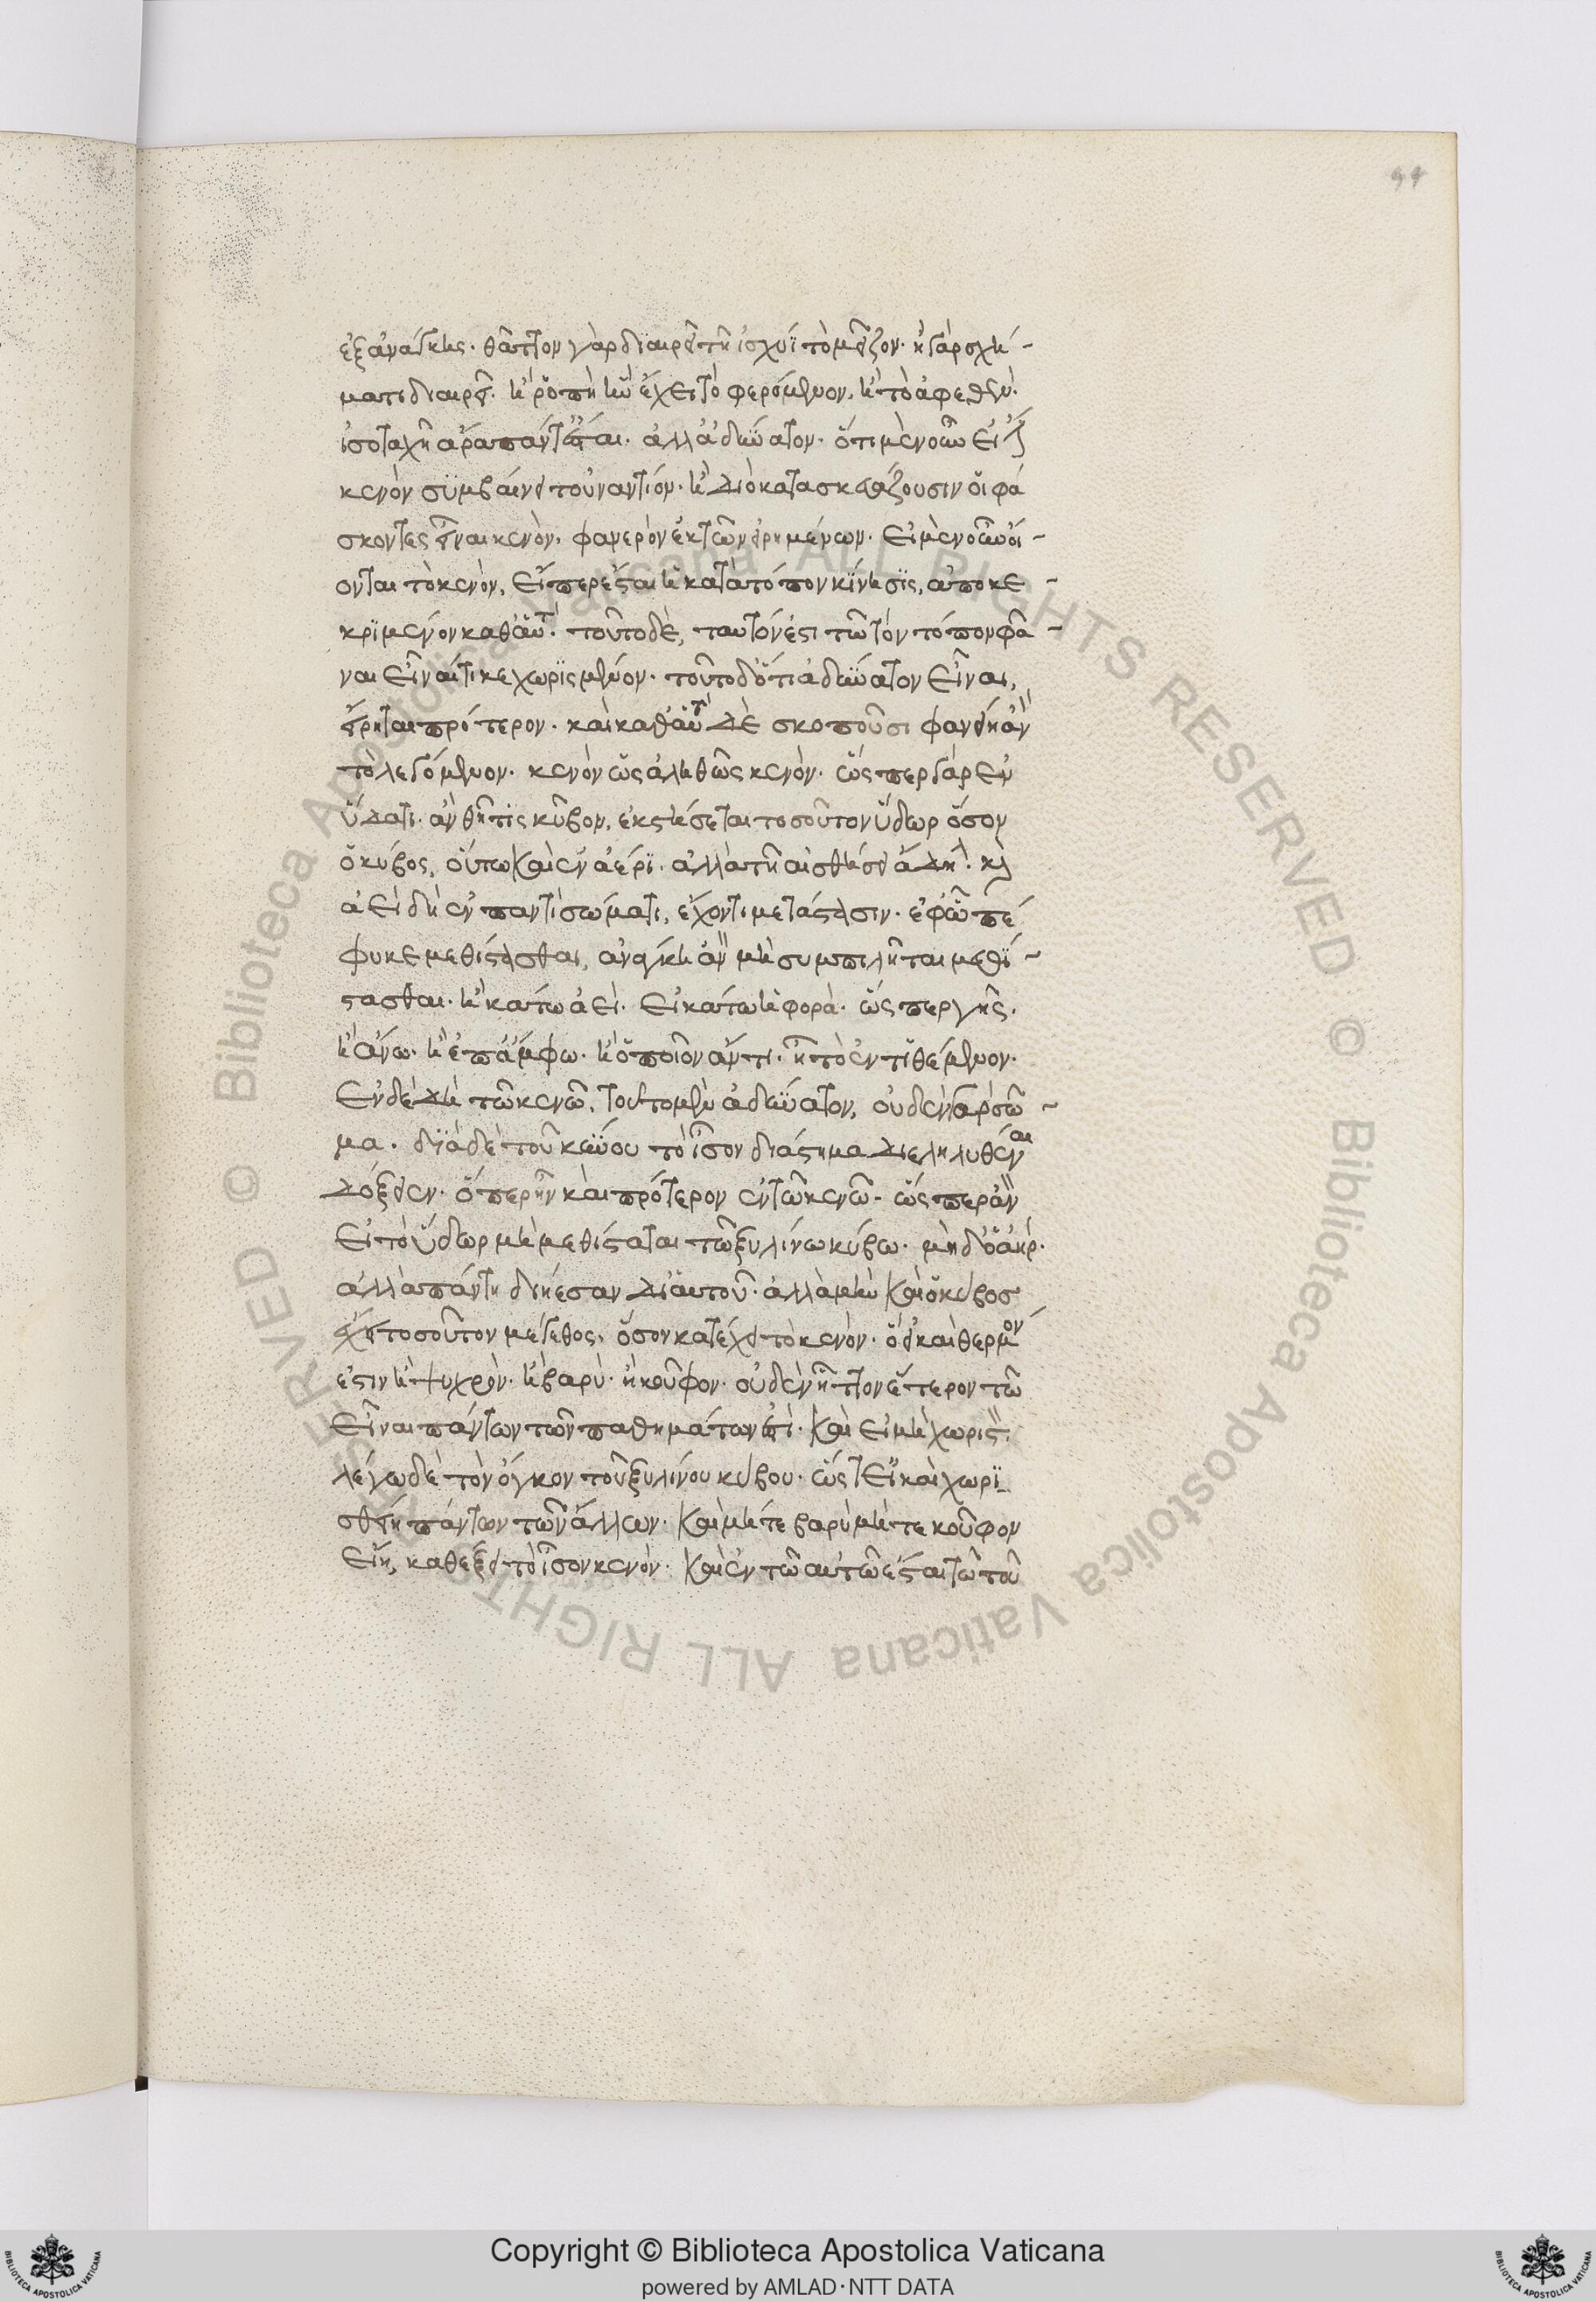 44
ἐξ ἀνάγκης· θᾶττον γὰρ διαιρεῖ τῆ ἰσχύϊ τὸ μεῖζον· ἢ γὰρ σχή-
ματι διαιρεῖ· ἢ ῥοπῆ ἣν ἔχει τὸ φερόμενον, ἢ τὸ ἀφεθέν·
ἰσοταχῆ ἄρα πάντ' ἔσται· ἀλλ' ἀδύνατον· ὅτι μὲν οὖν εἰ ἔστι
κενὸν συμβαίνει τοὐναντίον· ἢ διὸ κατασκευάζουσιν οἱ φά
σκοντες εἶναι κενὸν, φανερὸν ἐκ τῶν εἰρημένων· εἰ μὲν οὖν οἴ-
ονται τὸ κενὸν, εἴπερ ἔσται ἡ κατὰ τόπον κίνησις, ἀποκε-
κριμένον καθ' αὑτό· τοῦτο δὲ, ταυτόν ἐστι τῶ τὸν τόπον φᾶ-
ναι εἶναί τι κεχωρισμένον· τοῦτο δ' ὅτι ἀδύνατον εἶναι,
εἴρηται πρότερον· καὶ καθ' αὑτὸ δὲ σκοποῦσι φανείη ἂν
τὸ λεγόμενον· κενὸν ὡς ἀληθῶς κενὸν· ὥσπερ γὰρ ἐν
ὕδατι· ἂν θῆ τὶς κύβον, ἐκστήσεται τοσοῦτον ὕδωρ ὅσον
ὁ κύβος, οὕτω καὶ ἐν ἀέρι· ἀλλὰ τῆ αἰσθήσει ἄδηλ· κὶ
ἀεὶ δὴ ἐν παντὶ σώματι, ἔχοντι μετάστασιν· ἐφ' ὧ πέ
φυκε μεθίστασθαι, ἀνάγκη ἂν μὴ συμπιλῆται μεθί-
στασθαι· ἢ κάτω ἀεὶ· εἰ κάτω ἡ φορὰ· ὥσπερ γῆς·
ἢ ἄνω· ἢ ἐπ' ἄμφω· ἢ ὁποῖον ἄν τι· ἦ τὸ ἐντιθέμενον·
ἐν δὲ δὴ τῶ κενῶ, τοῦτο μὲν ἀδύνατον, οὐδὲν γὰρ σῶ-
μα· διὰ δὲ τοῦ κύβου τὸ ἴσον διάστημα διεληλυθέναι
δόξειεν· ὅπερ ἦν καὶ πρότερον ἐν τῶ κενῶ· ὥσπερ ἂν
εἰ τὸ ὕδωρ μὴ μεθίστατο τῶ ξυλίνω κύβω· μηδ' ὁ ἀήρ·
ἀλλὰ πάντη διήεσαν δι' αὐτοῦ· ἀλλὰ μὴν καὶ ὁ κύβος
ἔχει τοσοῦτον μέγεθος, ὅσον κατέχει τὸ κενὸν· ὃ εἰ καὶ θερμόν
ἐστιν ἢ ψυχρὸν· ἢ βαρὺ· ἢ κοῦφον· οὐδὲν ἧττον ἕτερον τῶ
εἶναι πάντων τῶν παθημάτων ἐστὶ· καὶ εἰ μὴ χωριστ·
λέγω δὲ τὸν ὄγκον τοῦ ξυλίνου κύβου· ὥστ' εἰ καὶ χωρι
σθείη πάντων τῶν ἄλλων· καὶ μήτε βαρὺ μήτε κοῦφον
εἴη, καθέξει τὸ ἴσον κενὸν· καὶ ἐν τῶ αὐτῶ ἔσται τῶ τοῦ
© Biblioteca Apostolica Vaticana ALL RIGHTS RESERVED © Biblioteca Apostolica Vaticana ALL RIGHTS RESERVED
Copyright © Biblioteca Apostolica Vaticana
powered by AMLAD·NTT DATA
BIBLIOTECA APOSTOLICA VATICANA
BIBLIOTECA APOSTOLICA VATICANA